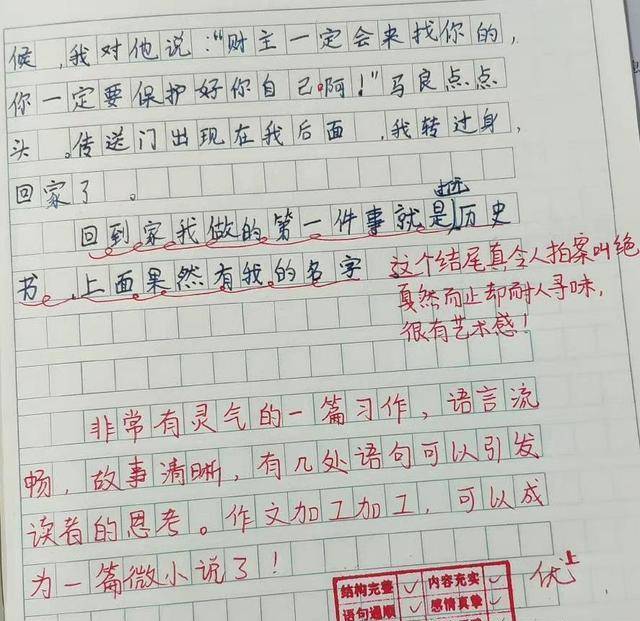 候,我对他说:“财主一定会来找你的,
你一定要保护好你自己啊!”马良点点
头。传送门出现在我后面,我转过身,
回家了。
回到家我做的第一件事就是历史
书,上面果然有我的名字
这个结尾真令人拍案叫绝
戛然而止却耐人寻味,
很有艺术感!
非常有灵气的一篇习作,语言流
畅,故事清晰,有几处语句可以引发
读者的思考。作文加工加工,可以成
为一篇微小说了!
优上
结构完整 ✓ 内容充实 ✓
语句通顺 ✓ 感情真挚 ✓